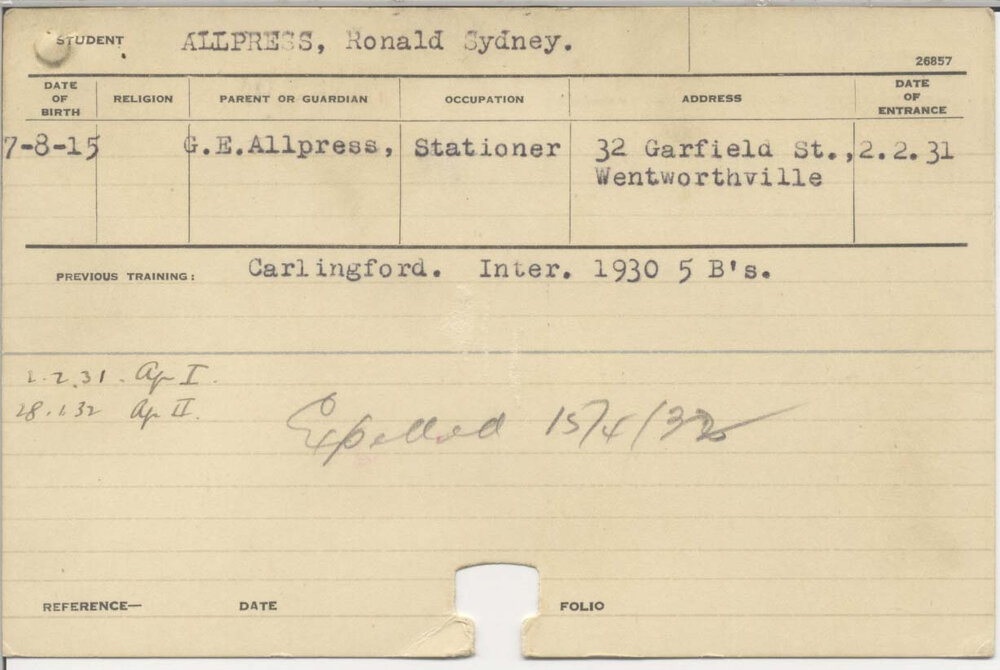 STUDENT ALLPRESS, Ronald Sydney.
26857
DATE OF BIRTH RELIGION PARENT OR GUARDIAN OCCUPATION ADDRESS DATE OF ENTRANCE
7-8-15 G.E.Allpress, Stationer 32 Garfield St., 2.2.31
Wentworthville
PREVIOUS TRAINING: Carlingford. Inter. 1930 5 B's.
2.2.31. Ap I.
28.1.32 Ap II.
Expelled 15/4/32
REFERENCE— DATE FOLIO